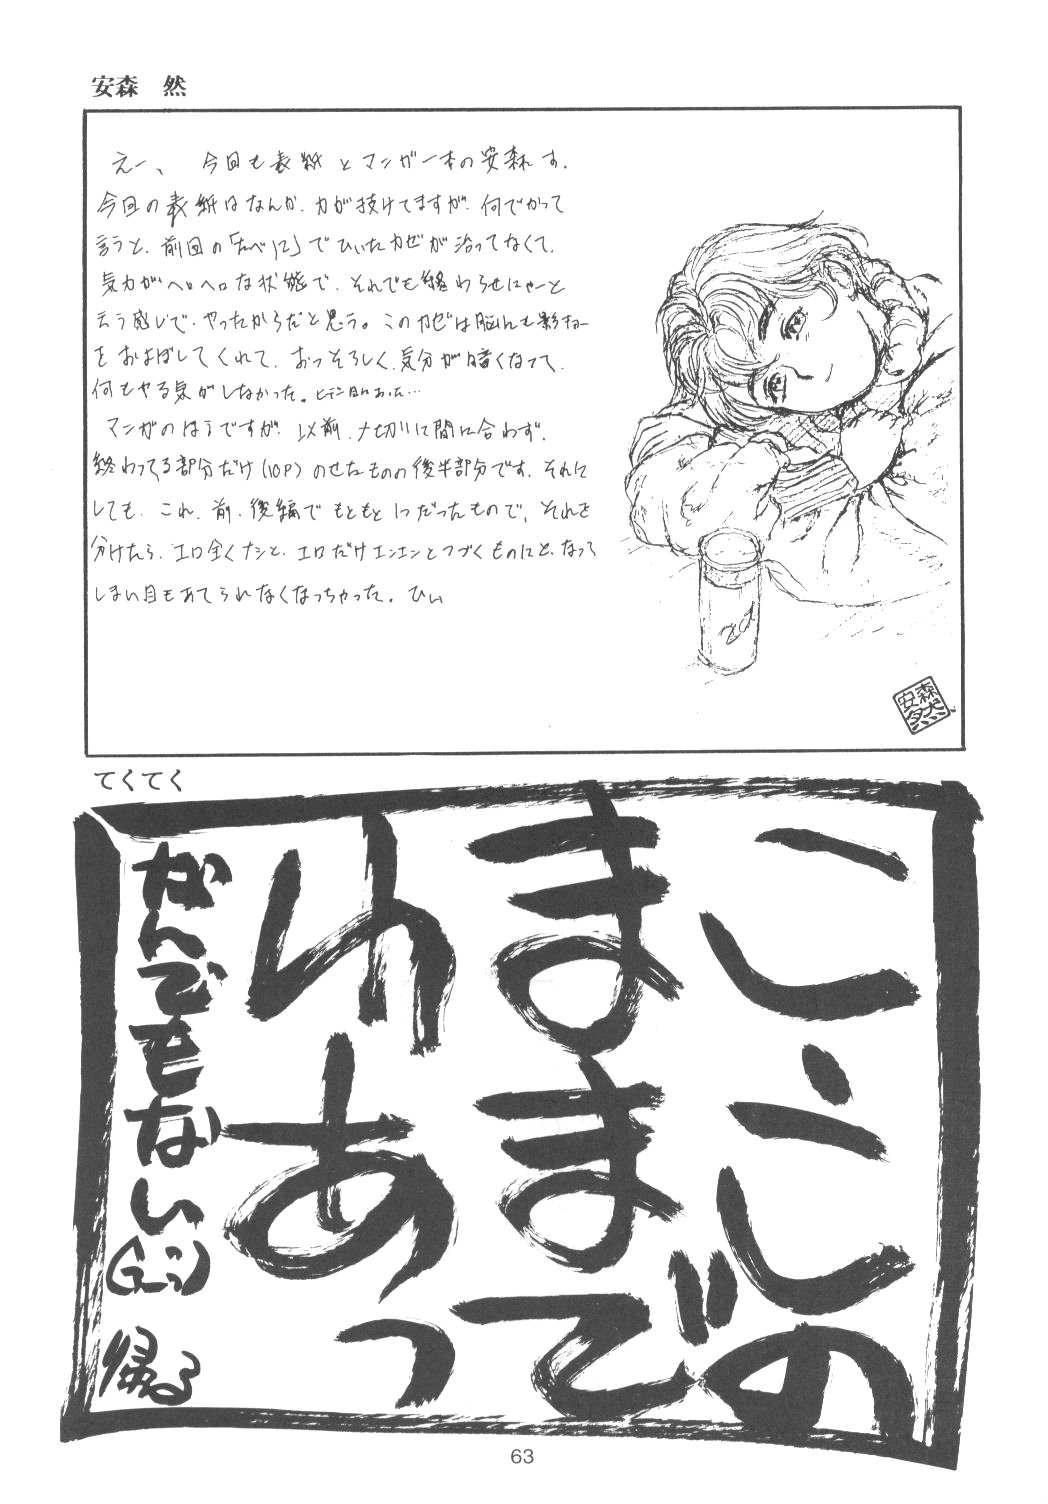 安森 然
えー、 今回も表紙とマンガ一本の安森す.
今回の表紙はなんか.力が抜けてますが.何でかって
言うと.前回の「たべに」でひいたカゼが治ってなくて.
気力がヘロヘロな状態で.それでも終わらせにゃーと
云う感じで.やったからだと思う。このカゼは脳にも影きょー
をおよぼしてくれて.おっそろしく.気分が暗くなって.
何もやる気がしなかった。ヒデェ目にあった…
マンガのほうですが.以前.〆切りに間に合わず.
終わってる部分だけ(10P)のせたものの後半部分です.それに
しても.これ.前.後編でもともと1つだったもので.それを
分けたら.エロ全くナシと.エロだけエンエンとつづくものにと.なって
しまい目もあてられなくなっちゃった。ひぃ
2d
安森然
てくてく
ここの
ままで
あっ
なんでもない
帰る
63